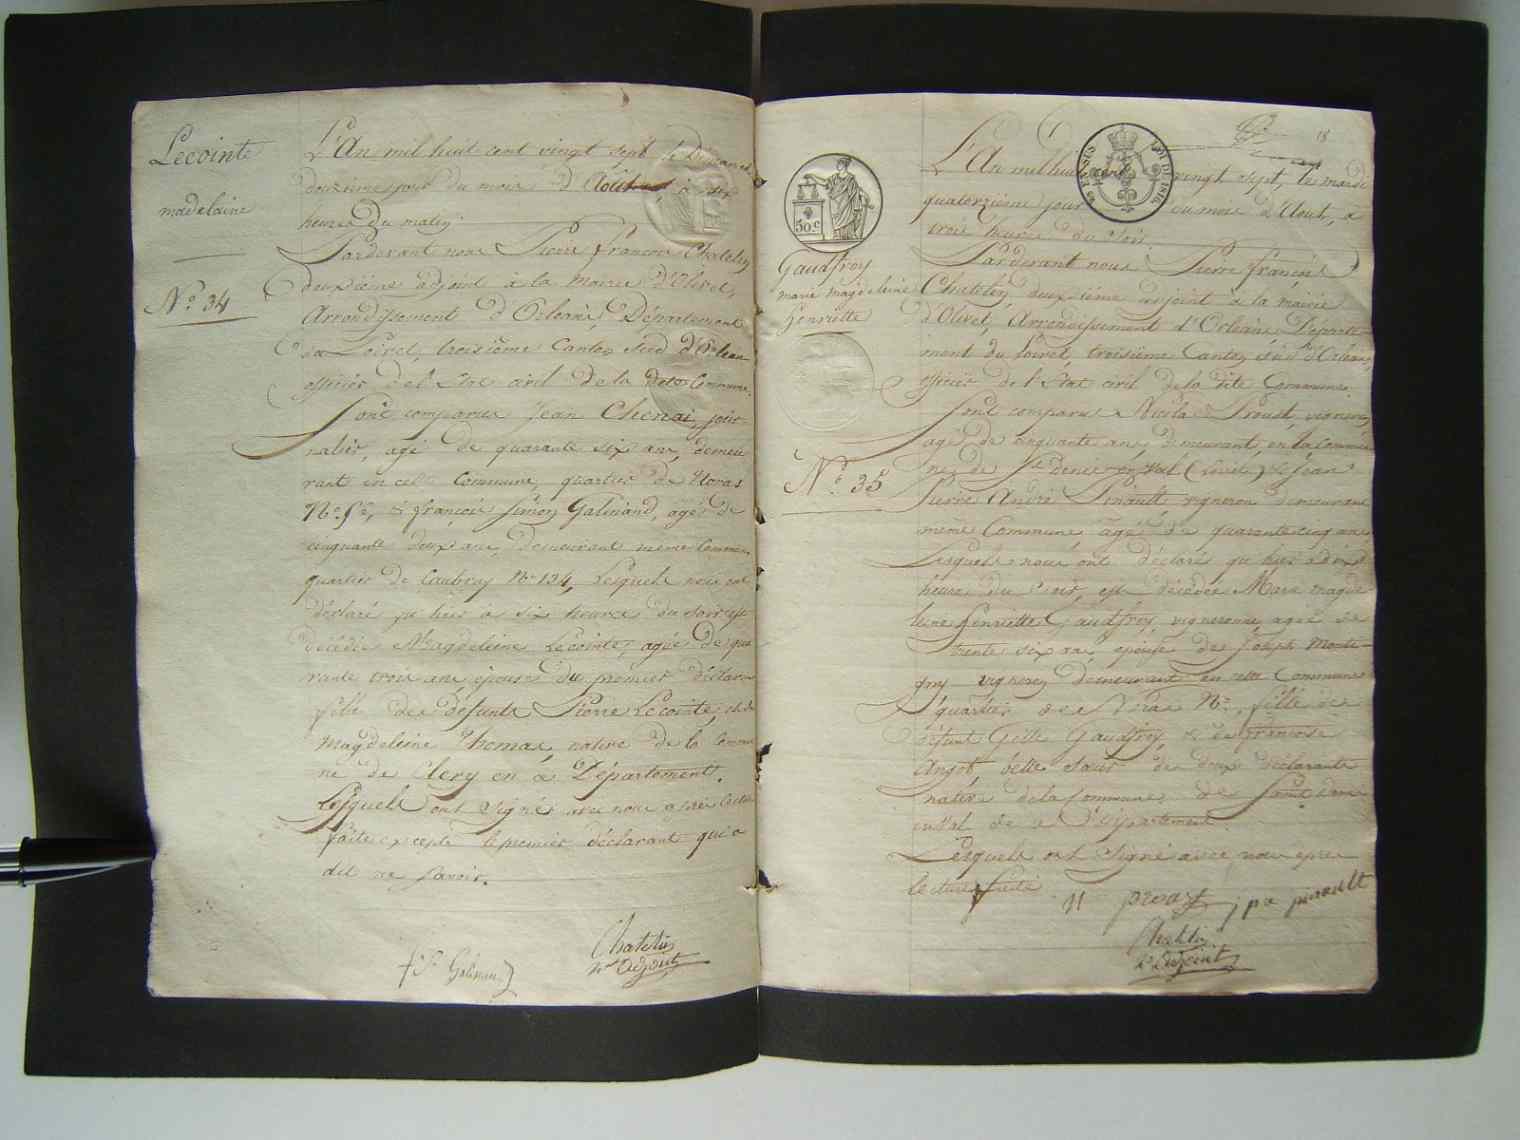 Lecointe
madelaine
N.º 34
L'An mil huit cent vingt sept le Dimanche
douzième jour du mois d'Août à dix
heures du matin
Pardevant nous Pierre françois Chatelin
deuxième adjoint à la Mairie d'Olivet,
Arrondissement d'Orléans, Département
du Loiret, troisième Canton Sud d'Orléans
officier de l'Etat civil de la dite Commune.
Sont comparus Jean Chenai, jour-
nalier, agé de quarante six ans, demeu
rant en cette Commune, quartier de
& françois Simon Galinand, agé de
cinquante deux ans, demeurant même Commune
quartier de Caubray Nº 134, Lesquels nous ont
déclaré qu'hier à six heures du soir est
décédée Magdeleine Lecointe, agée de qua
rante trois ans épouse du premier déclarant
fille de défunts Pierre Lecointe, et de
Magdeleine Thomas, native de la Commu
ne de Clery en ce Département.
Lesquels ont signé avec nous après lecture
faite excepté le premier déclarant qui a
dit ne savoir.
Chatelin
2e Adjoint
f. S. Galinand
18
50 c.
EN SUS
LOI DE 1816.
Gaudfroy
marie magdeleine
henriette
N.º 35
L'An mil huit cent vingt sept, le mardi
quatorzième jour du mois d'Aout, à
trois heures du soir.
Pardevant nous Pierre françois
Chatelin, deuxième adjoint à la mairie
d'Olivet, Arrondissement d'Orléans Départe
ment du Loiret, troisième Canton Sud d'Orléans,
officier de l'Etat civil de la dite Commune.
Sont comparus Nicolas Proust, vigneron
agé de cinquante ans, demeurant en la Commu
ne de St. Denis en Val (Loiret) & Jean
Pierre André Pinault, vigneron demeurant
même Commune, agé de quarante cinq ans
Lesquels nous ont déclaré qu'hier à dix
heures du soir, est décédée Marie magde
leine henriette Gaudfroy, vigneronne, agée de
trente six ans, épouse de Joseph
vigneron demeurant en cette Commune
quartier de Nº, fille de
défunt Gille Gaudfroy, & de françoise
Angot, belle soeur de deux déclarants
native de la Commune de Saint Denis
en Val de ce Département.
Lesquels ont signé avec nous après
lecture faite
N proust j pa pinault
Chatelin
2e Adjoint